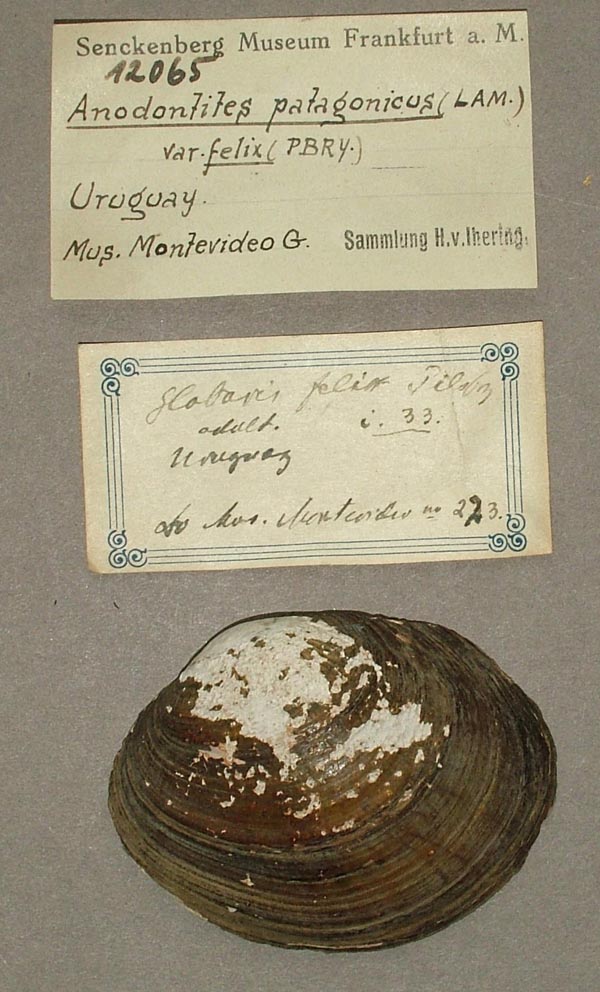 Senckenberg Museum Frankfurt a. M.
12065
Anodontites patagonicus (LAM.)
var. felix (PBRY.)
Uruguay.
Mus. Montevideo G. Sammlung H.v.Ihering.
Glabaris felix Pilsbry
adult. i. 33.
Uruguay
do Mus. Montevideo no 273.